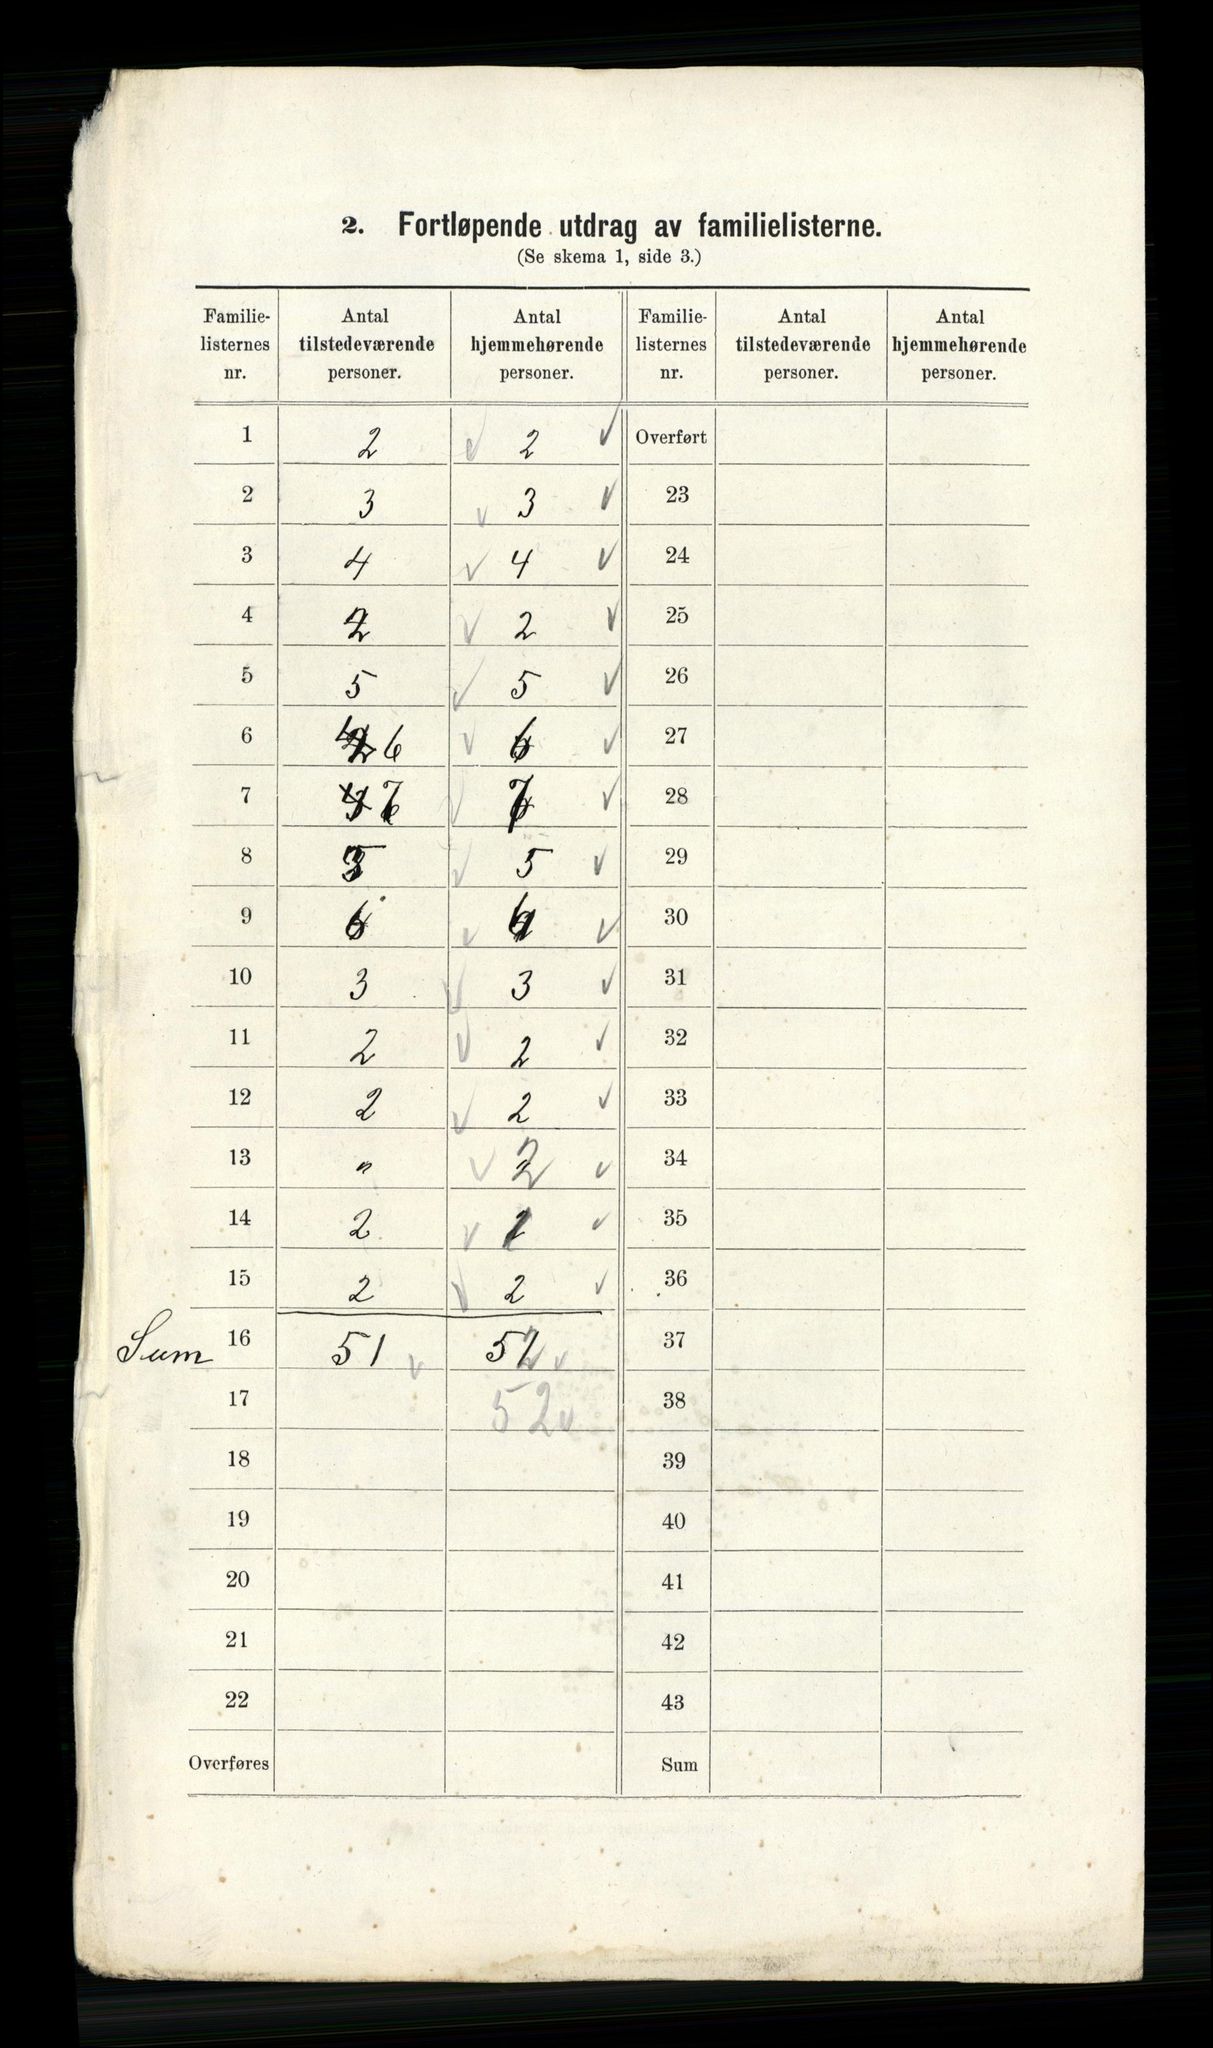 2. Fortløpende utdrag av familielisterne.
(Se skema 1, side 3.)
Familie-listernes nr. | Antal tilstedeværende personer. | Antal hjemmehørende personer. | Familie-listernes nr. | Antal tilstedeværende personer. | Antal hjemmehørende personer.
1 | 2 | √ 2 √ | Overført
2 | 3 | √ 3 √ | 23
3 | 4 | √ 4 √ | 24
4 | 2 | √ 2 √ | 25
5 | 5 | √ 5 √ | 26
6 | 6 | √ 6 √ | 27
7 | 7 | √ 7 √ | 28
8 | 5 | √ 5 √ | 29
9 | 6 | √ 6 √ | 30
10 | 3 | √ 3 √ | 31
11 | 2 | √ 2 √ | 32
12 | 2 | √ 2 √ | 33
13 | " | √ 2 √ | 34
14 | 2 | √ 1 √ | 35
15 | 2 | √ 2 √ | 36
Sum 16 | 51 √ | 52 √ | 37
17 | | 52 √ | 38
18 | | | 39
19 | | | 40
20 | | | 41
21 | | | 42
22 | | | 43
Overføres | | | Sum